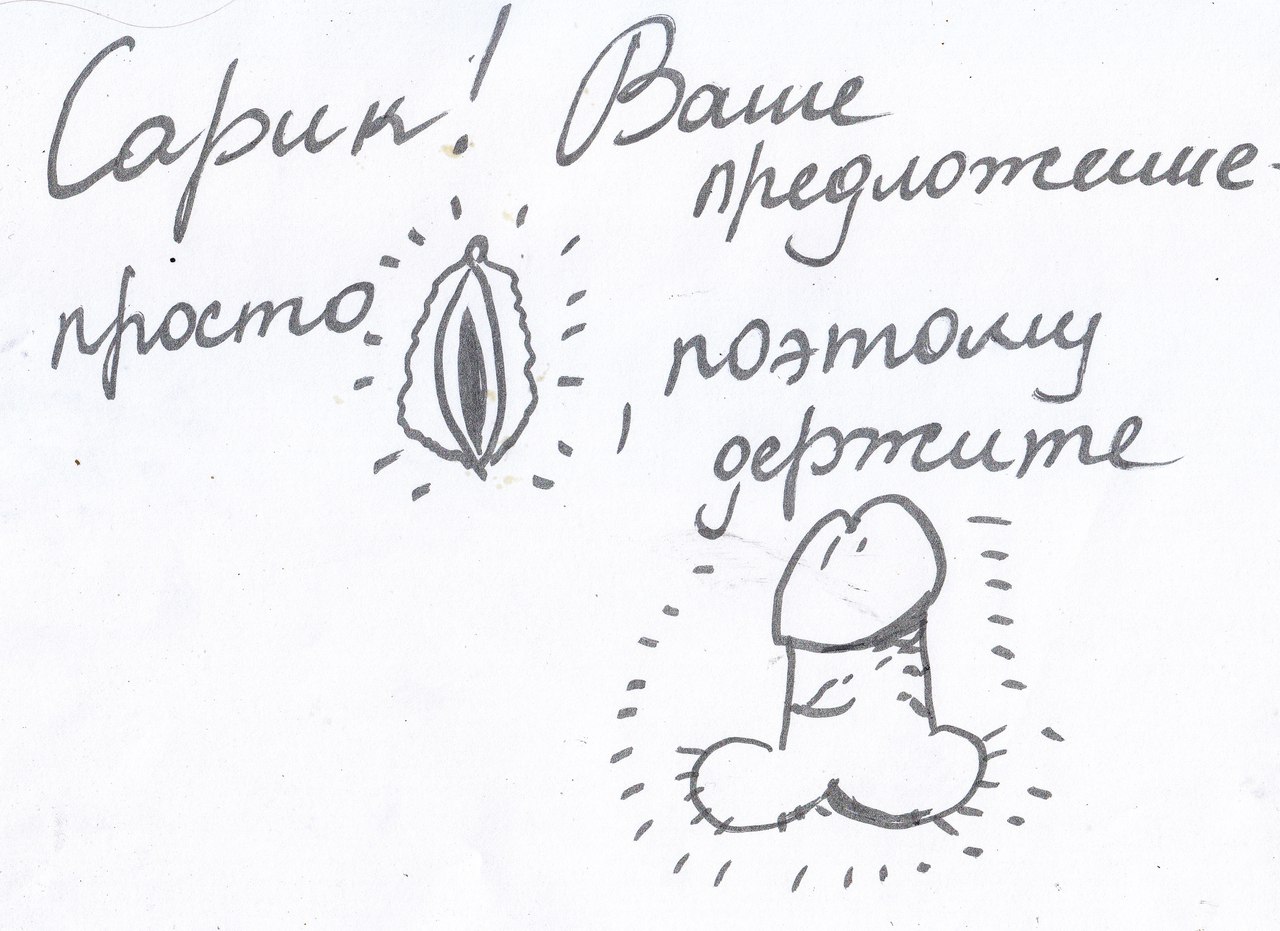 Сарик! Ваше
предложение -
просто
, поэтому
держите